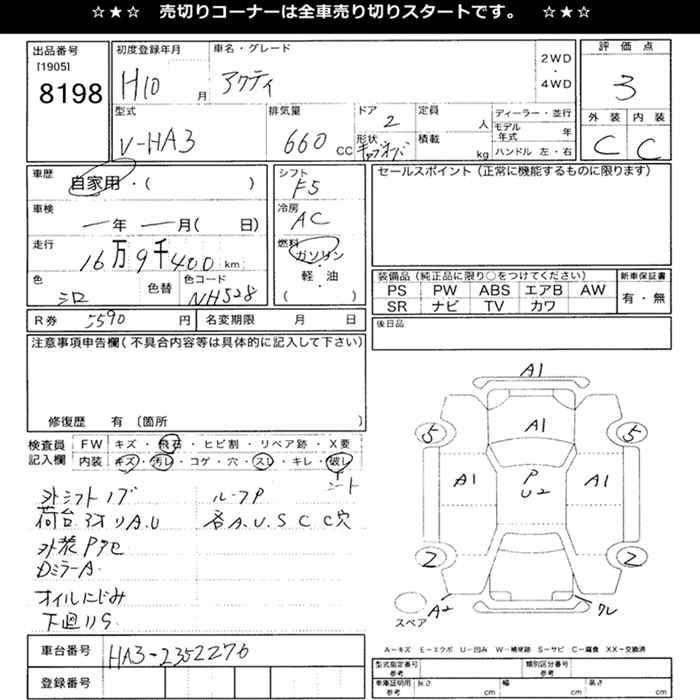 ☆★☆　売切りコーナーは全車売り切りスタートです。　☆★☆
出品番号
[1905]
8198
初度登録年月
H10 月
車名・グレード
アクティ
2WD
・
4WD
評価点
3
型式
V-HA3
排気量
660 CC
ドア
2
形状
キャブオーバ
定員
人
積載
kg
ディーラー・並行
モデル年式 年
ハンドル 左・右
外装 内装
C C
車歴
自家用・( )
シフト
F5
セールスポイント(正常に機能するものに限ります)
車検
― 年 ― 月( 日)
冷房
AC
走行
16万9千400 km
燃料
ガソリン
・
軽・油
( )
色
シロ
色替
色コード
NH528
装備品(純正品に限り○をつけてください)
新車保証書
PS PW ABS エアB AW
有・無
SR ナビ TV カワ
R券 5590 円
名変期限 月 日
後日品
注意事項申告欄(不具合内容等は具体的に記入して下さい)
修復歴 有 〔箇所 〕
検査員
記入欄
FW キズ・飛石・ヒビ割・リペア跡・X要
内装 キズ・汚レ・コゲ・穴・スレ・キレ・破レ
シート
外シフトノブ ルーフP
荷台3方リA.U 各A.U.S C C穴
外装Pアセ
DミラーA
オイルにじみ
下廻りS
A1
A1
5 5
A1 A1
P
U2
2 2
A2 ワレ
スペア
A－キズ E－エクボ U－凹み W－補修跡 S－サビ C－腐食 XX－交換済
車台番号 HA3-2352276
登録番号
型式指定番号
参考
類別区分番号
参考
車庫証明用
参考
長さ cm 幅 cm 高さ cm